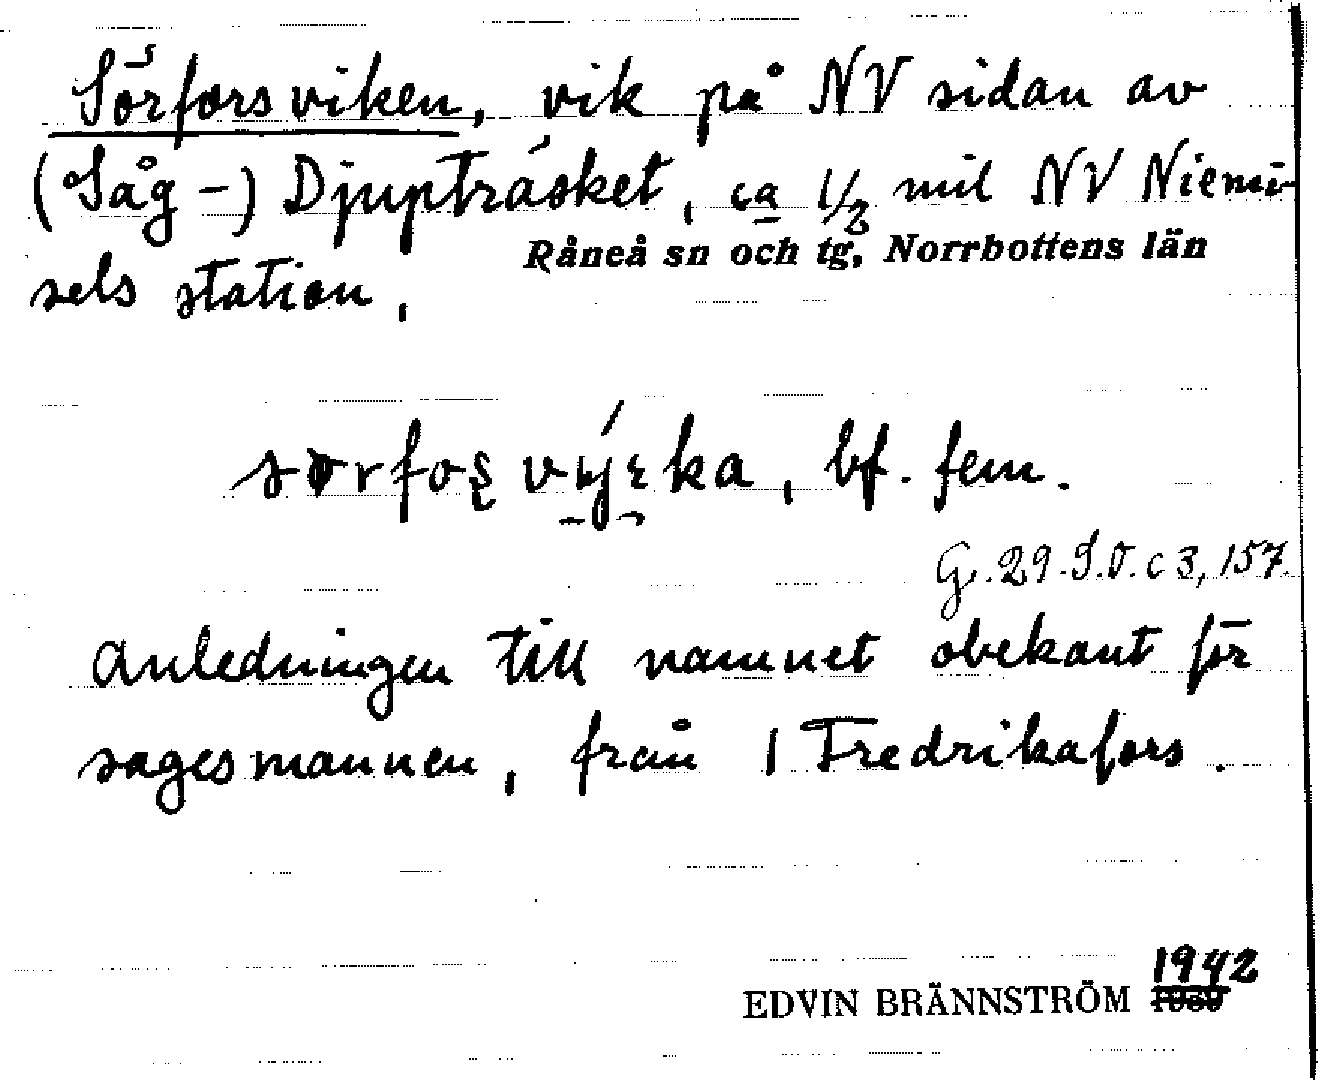 Sörforsviken, vik på NV sidan av
(Såg-) Djupträsket, ca 1/2 mil NV Niemi-
Råneå sn och tg, Norrbottens län
sels station.
bf. fem.
G. 29.S.V. c 3, 157.
Anledningen till namnet obekant för
sagesmannen, från Fredrikafors.
1942
EDVIN BRÄNNSTRÖM 1939